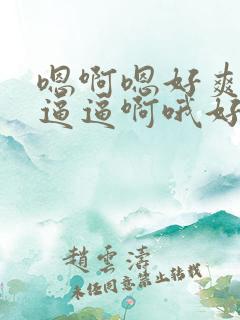 嗯啊嗯好爽
逼逼啊哦好
趙雲濤
未经同意禁止转载